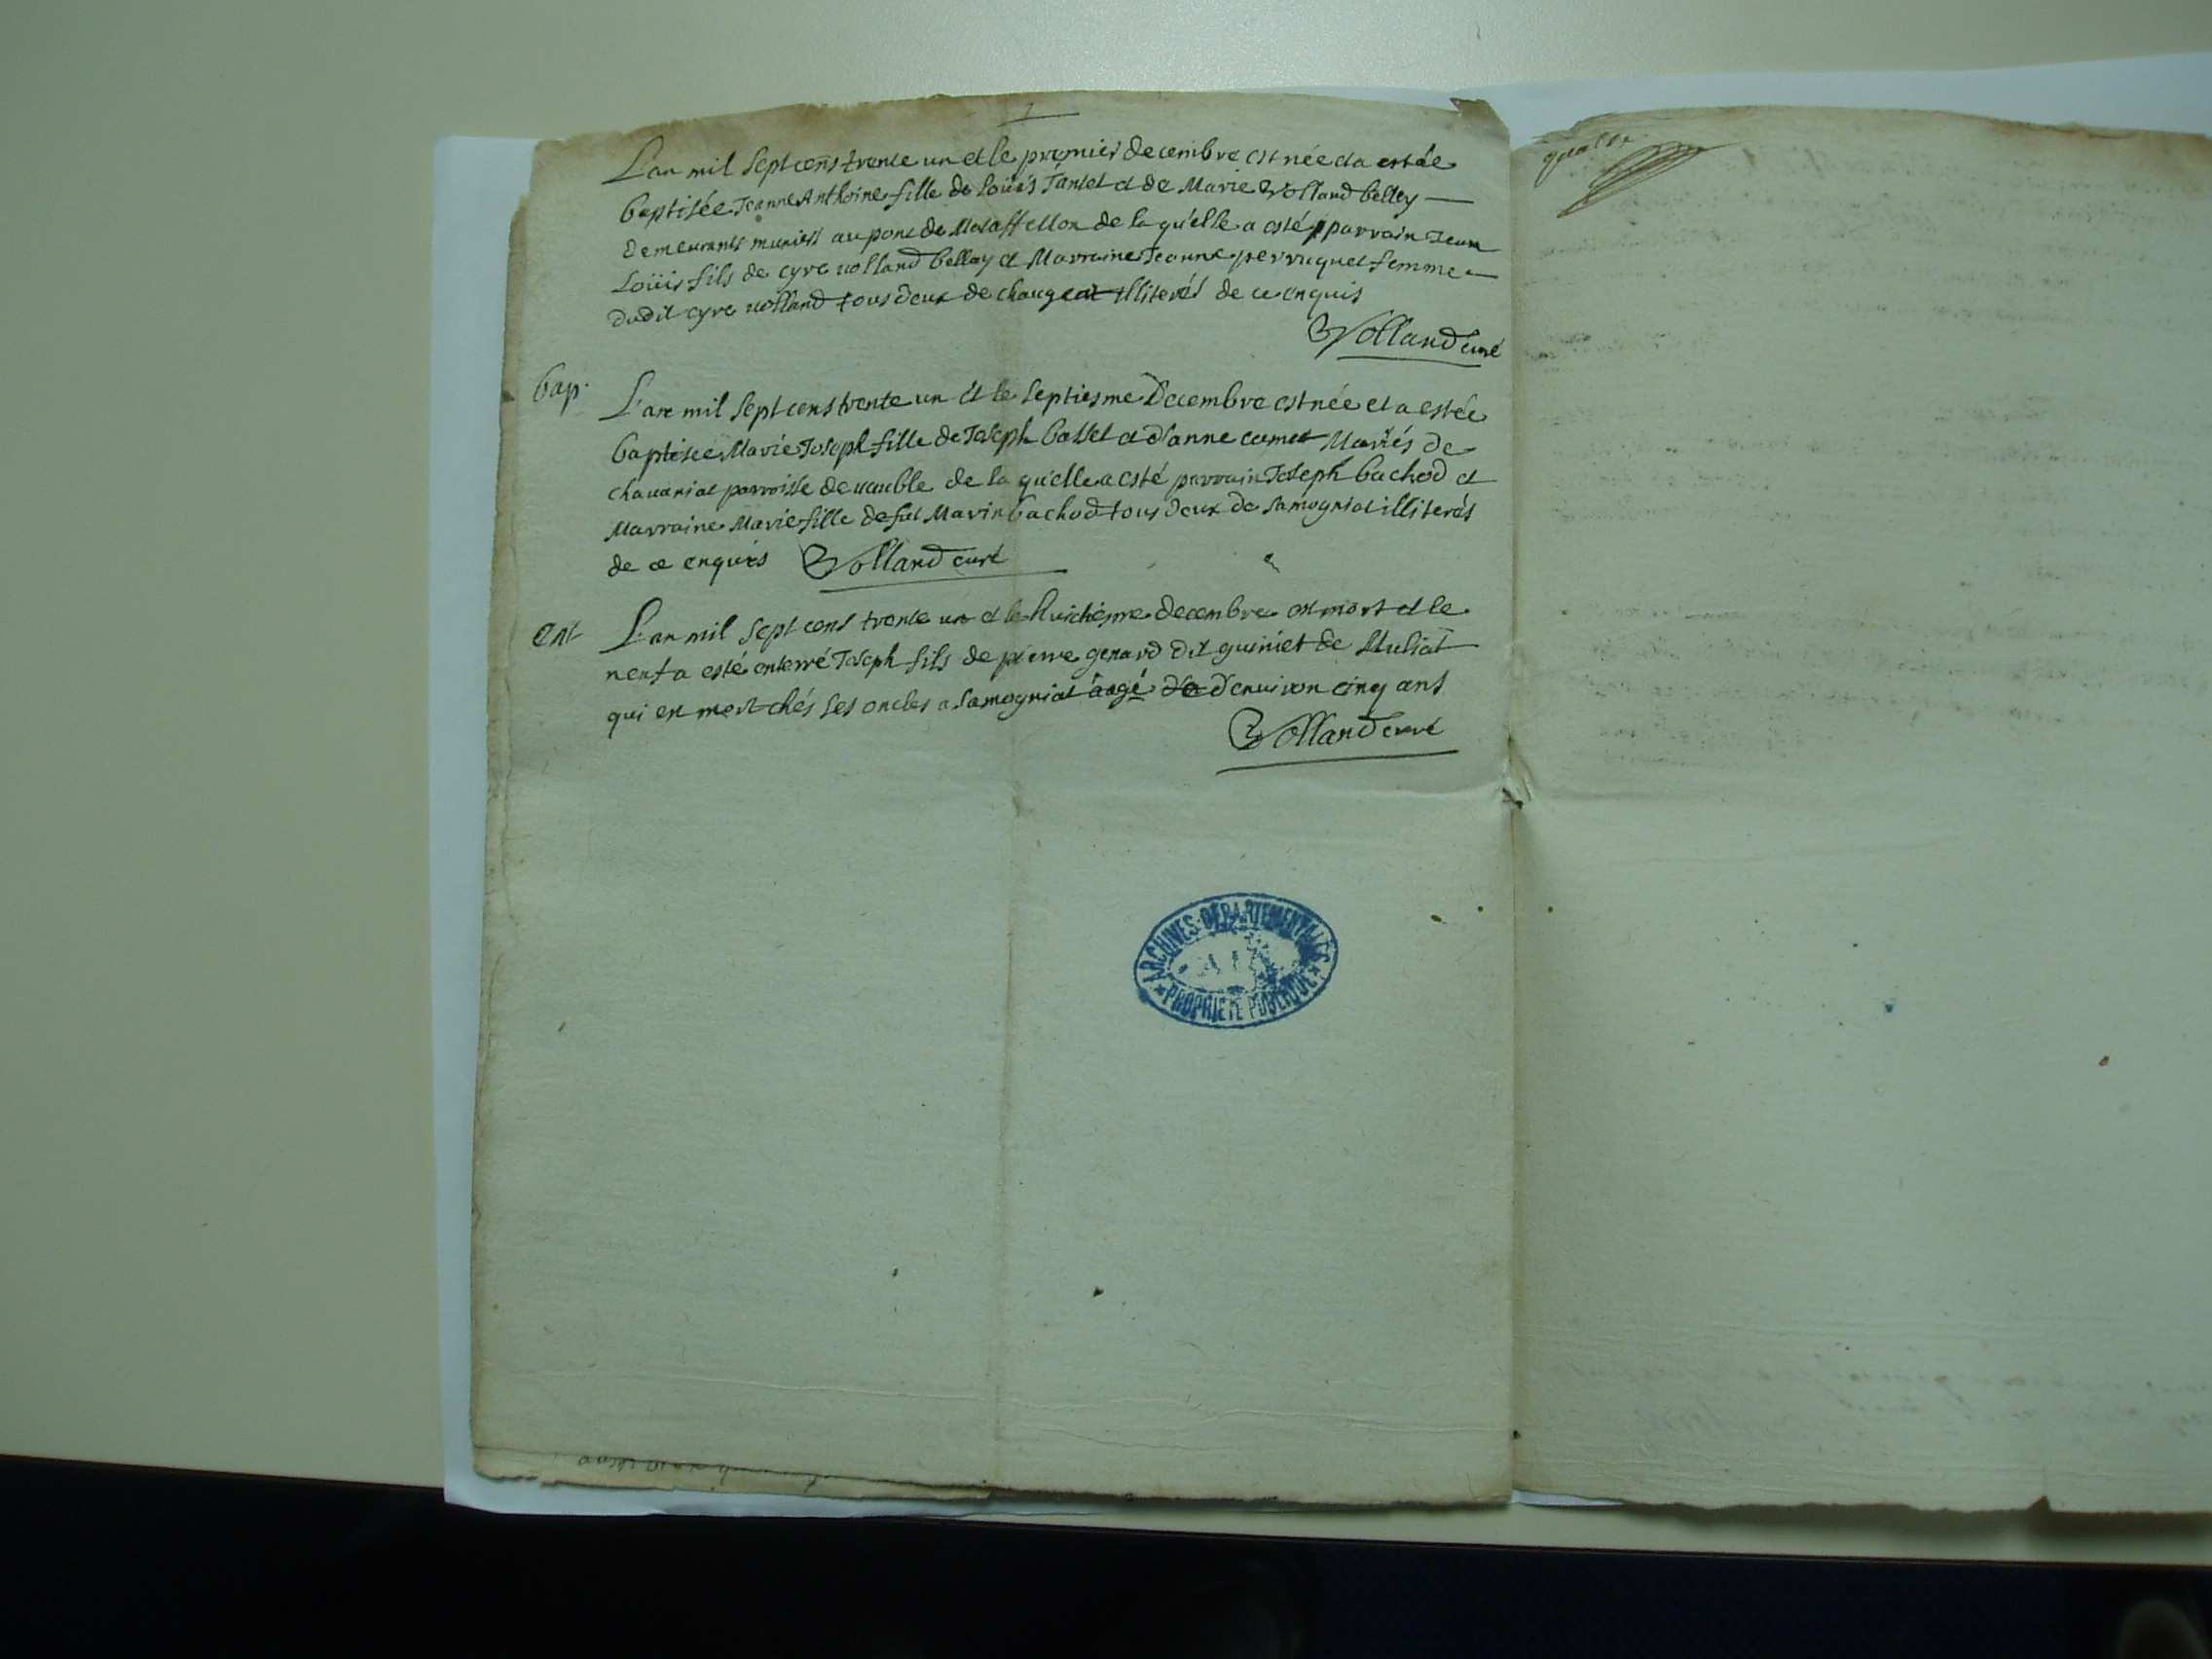 L'an mil sept cens trente un et le premier decembre est née et a estée
baptisée Jeanne Anthoine fille de Loüis Tantet et de Marie Volland belley
demeurants mariés au pont de Mataffellon de la qu'elle a esté parrain Jean
Loüis fils de Cyre volland bellay et Marraine Jeanne perruquet femme
dudit Cyre volland tous deux de changeat illiterés de ce enquis
Volland curé
bap.
L'an mil sept cens trente un et le septiesme Decembre est née et a estée
baptisée Marie Joseph fille de Joseph basset et d'anne camet Mariés de
chavaniat parroisse de de la qu'elle a esté parrain Joseph bachod et
Marraine Marie fille de fut Marin bachod tous deux de Samogniat illiterés
de ce enquis Volland curé
Ent
L'an mil sept cens trente un et le huictiesme decembre est mort et le
neuf a esté enterré Joseph fils de pierre genard dit guiniet de Muliat
qui est mort chés ses oncles a Samogniat âagé d'environ cinq ans
Volland curé
ARCHIVES DEPARTEMENTALES
AIN
PROPRIETE PUBLIQUE